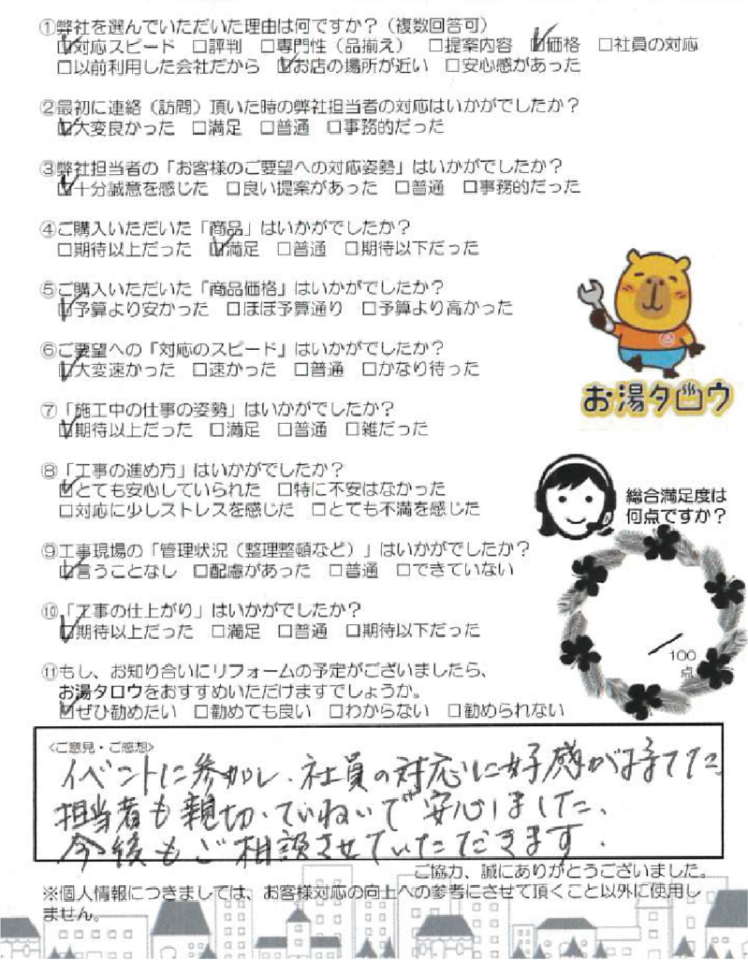 ①弊社を選んでいただいた理由は何ですか？（複数回答可）
☑対応スピード □評判 □専門性（品揃え） □提案内容 ☑価格 □社員の対応
□以前利用した会社だから ☑お店の場所が近い □安心感があった
②最初に連絡（訪問）頂いた時の弊社担当者の対応はいかがでしたか？
☑大変良かった □満足 □普通 □事務的だった
③弊社担当者の「お客様のご要望への対応姿勢」はいかがでしたか？
☑十分誠意を感じた □良い提案があった □普通 □事務的だった
④ご購入いただいた「商品」はいかがでしたか？
□期待以上だった ☑満足 □普通 □期待以下だった
⑤ご購入いただいた「商品価格」はいかがでしたか？
☑予算より安かった □ほぼ予算通り □予算より高かった
⑥ご要望への「対応のスピード」はいかがでしたか？
☑大変速かった □速かった □普通 □かなり待った
お湯タロウ
⑦「施工中の仕事の姿勢」はいかがでしたか？
☑期待以上だった □満足 □普通 □雑だった
⑧「工事の進め方」はいかがでしたか？
☑とても安心していられた □特に不安はなかった
□対応に少しストレスを感じた □とても不満を感じた
総合満足度は
何点ですか？
⑨工事現場の「管理状況（整理整頓など）」はいかがでしたか？
☑言うことなし □配慮があった □普通 □できていない
⑩「工事の仕上がり」はいかがでしたか？
☑期待以上だった □満足 □普通 □期待以下だった
／100
点
⑪もし、お知り合いにリフォームの予定がございましたら、
お湯タロウをおすすめいただけますでしょうか。
☑ぜひ勧めたい □勧めても良い □わからない □勧められない
<ご意見・ご感想>
イベントに参加し、社員の対応に好感が持てた
担当者も親切、ていねいで安心しました、
今後もご相談させていただきます.
ご協力、誠にありがとうございました。
※個人情報につきましては、お客様対応の向上への参考にさせて頂くこと以外に使用し
ません。